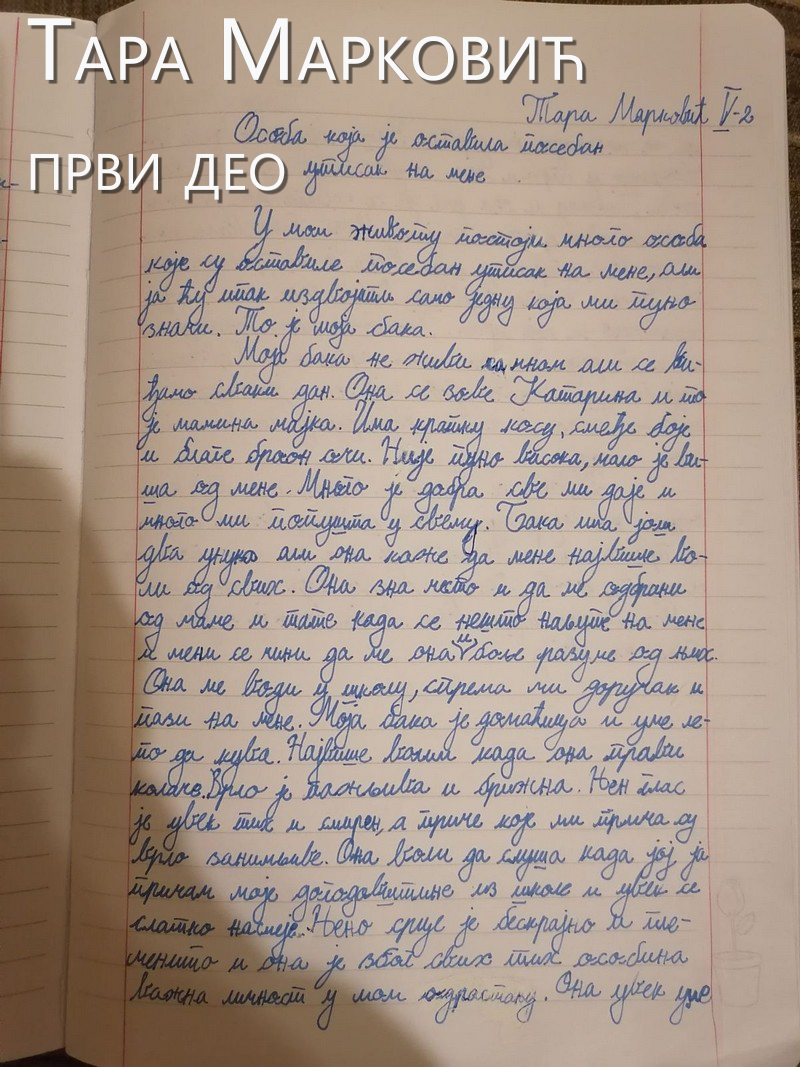 ТАРА МАРКОВИЋ
Тара Марковић V-2
Особа која је оставила посебан
ПРВИ ДЕО
утисак на мене
У мом животу постоји много особа
које су оставиле посебан утисак на мене, али
ја ћу ипак издвојити само једну која ми пуно
значи. То је моја бака.
Моја бака не живи са мном али се ви-
ђамо сваки дан. Она се зове Катарина и то
је мамина мајка. Има кратку косу, смеђе боје
и благе браон очи. Није пуно висока, мало је ви-
ша од мене. Много је добра све ми даје и
много ми попушта у свему. Бака има још
два унука али она каже да мене највише во-
ли од свих. Она зна често и да ме одбрани
од маме и тате када се нешто наљуте на мене
и мени се чини да ме она и боље разуме од њих.
Она ме води у школу, спрема ми доручак и
пази на мене. Моја бака је домаћица и уме ле-
по да кува. Највише волим када она прави
колаче. Врло је пажљива и брижна. Њен глас
је увек тих и смирен, а приче које ми прича су
врло занимљиве. Она воли да слуша када јој ја
причам моје догодовштине из школе и увек се
слатко насмеје. Њено срце је бескрајно и пле-
менито и она је због свих тих особина
важна личност у мом одрастању. Она увек уме